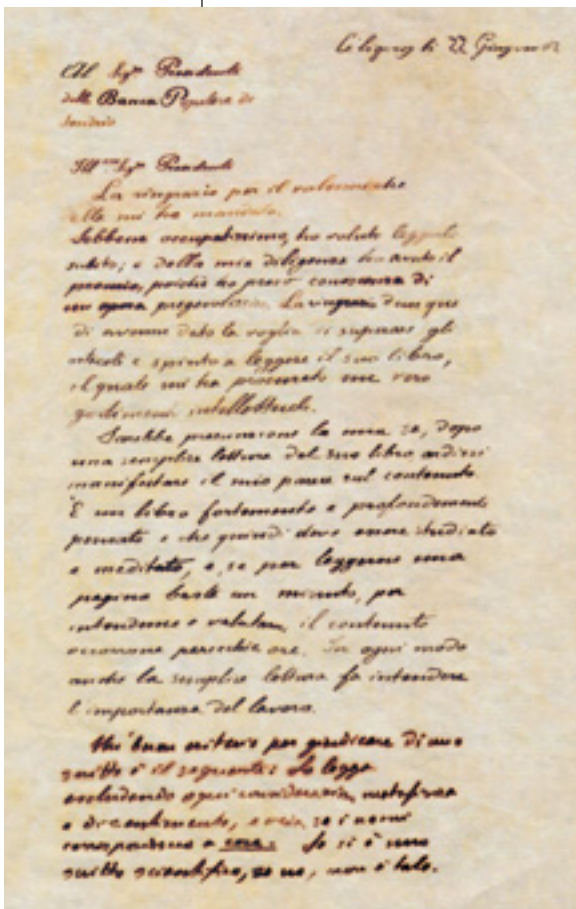 22 Giugno
Al Sigr Presidente
della Banca Popolare di
Sondrio
Ill.mo Sigr Presidente
La ringrazio per il volumetto
che mi ha mandato.
Sebbene occupatissimo, ho voluto leggerlo
subito; e della mia diligenza ho avuto il
premio, poichè ho preso conoscenza di
un opera pregevolissima. La ringrazio dunque
di avermi dato la voglia di superare gli
ostacoli e spinto a leggere il suo libro,
il quale mi ha procurato un vero
godimento intellettuale.
Sarebbe presunzione la mia se, dopo
una semplice lettura del suo libro, ardissi
manifestare il mio parere sul contenuto.
È un libro fortemente e profondamente
pensato e che quindi deve essere studiato
e meditato, e, se per leggerne una
pagina basta un minuto, per
intenderne e valutare il contenuto
occorrono parecchie ore. In ogni modo
anche la semplice lettura fa intendere
l'importanza del lavoro.
Un buon criterio per giudicare di uno
scritto è il seguente: Lo legga
escludendo ogni considerazione metafisica
o di sentimento, e veda se i nomi
corrispondono a cose. Se sì è uno
scritto scientifico, se no, non è tale.